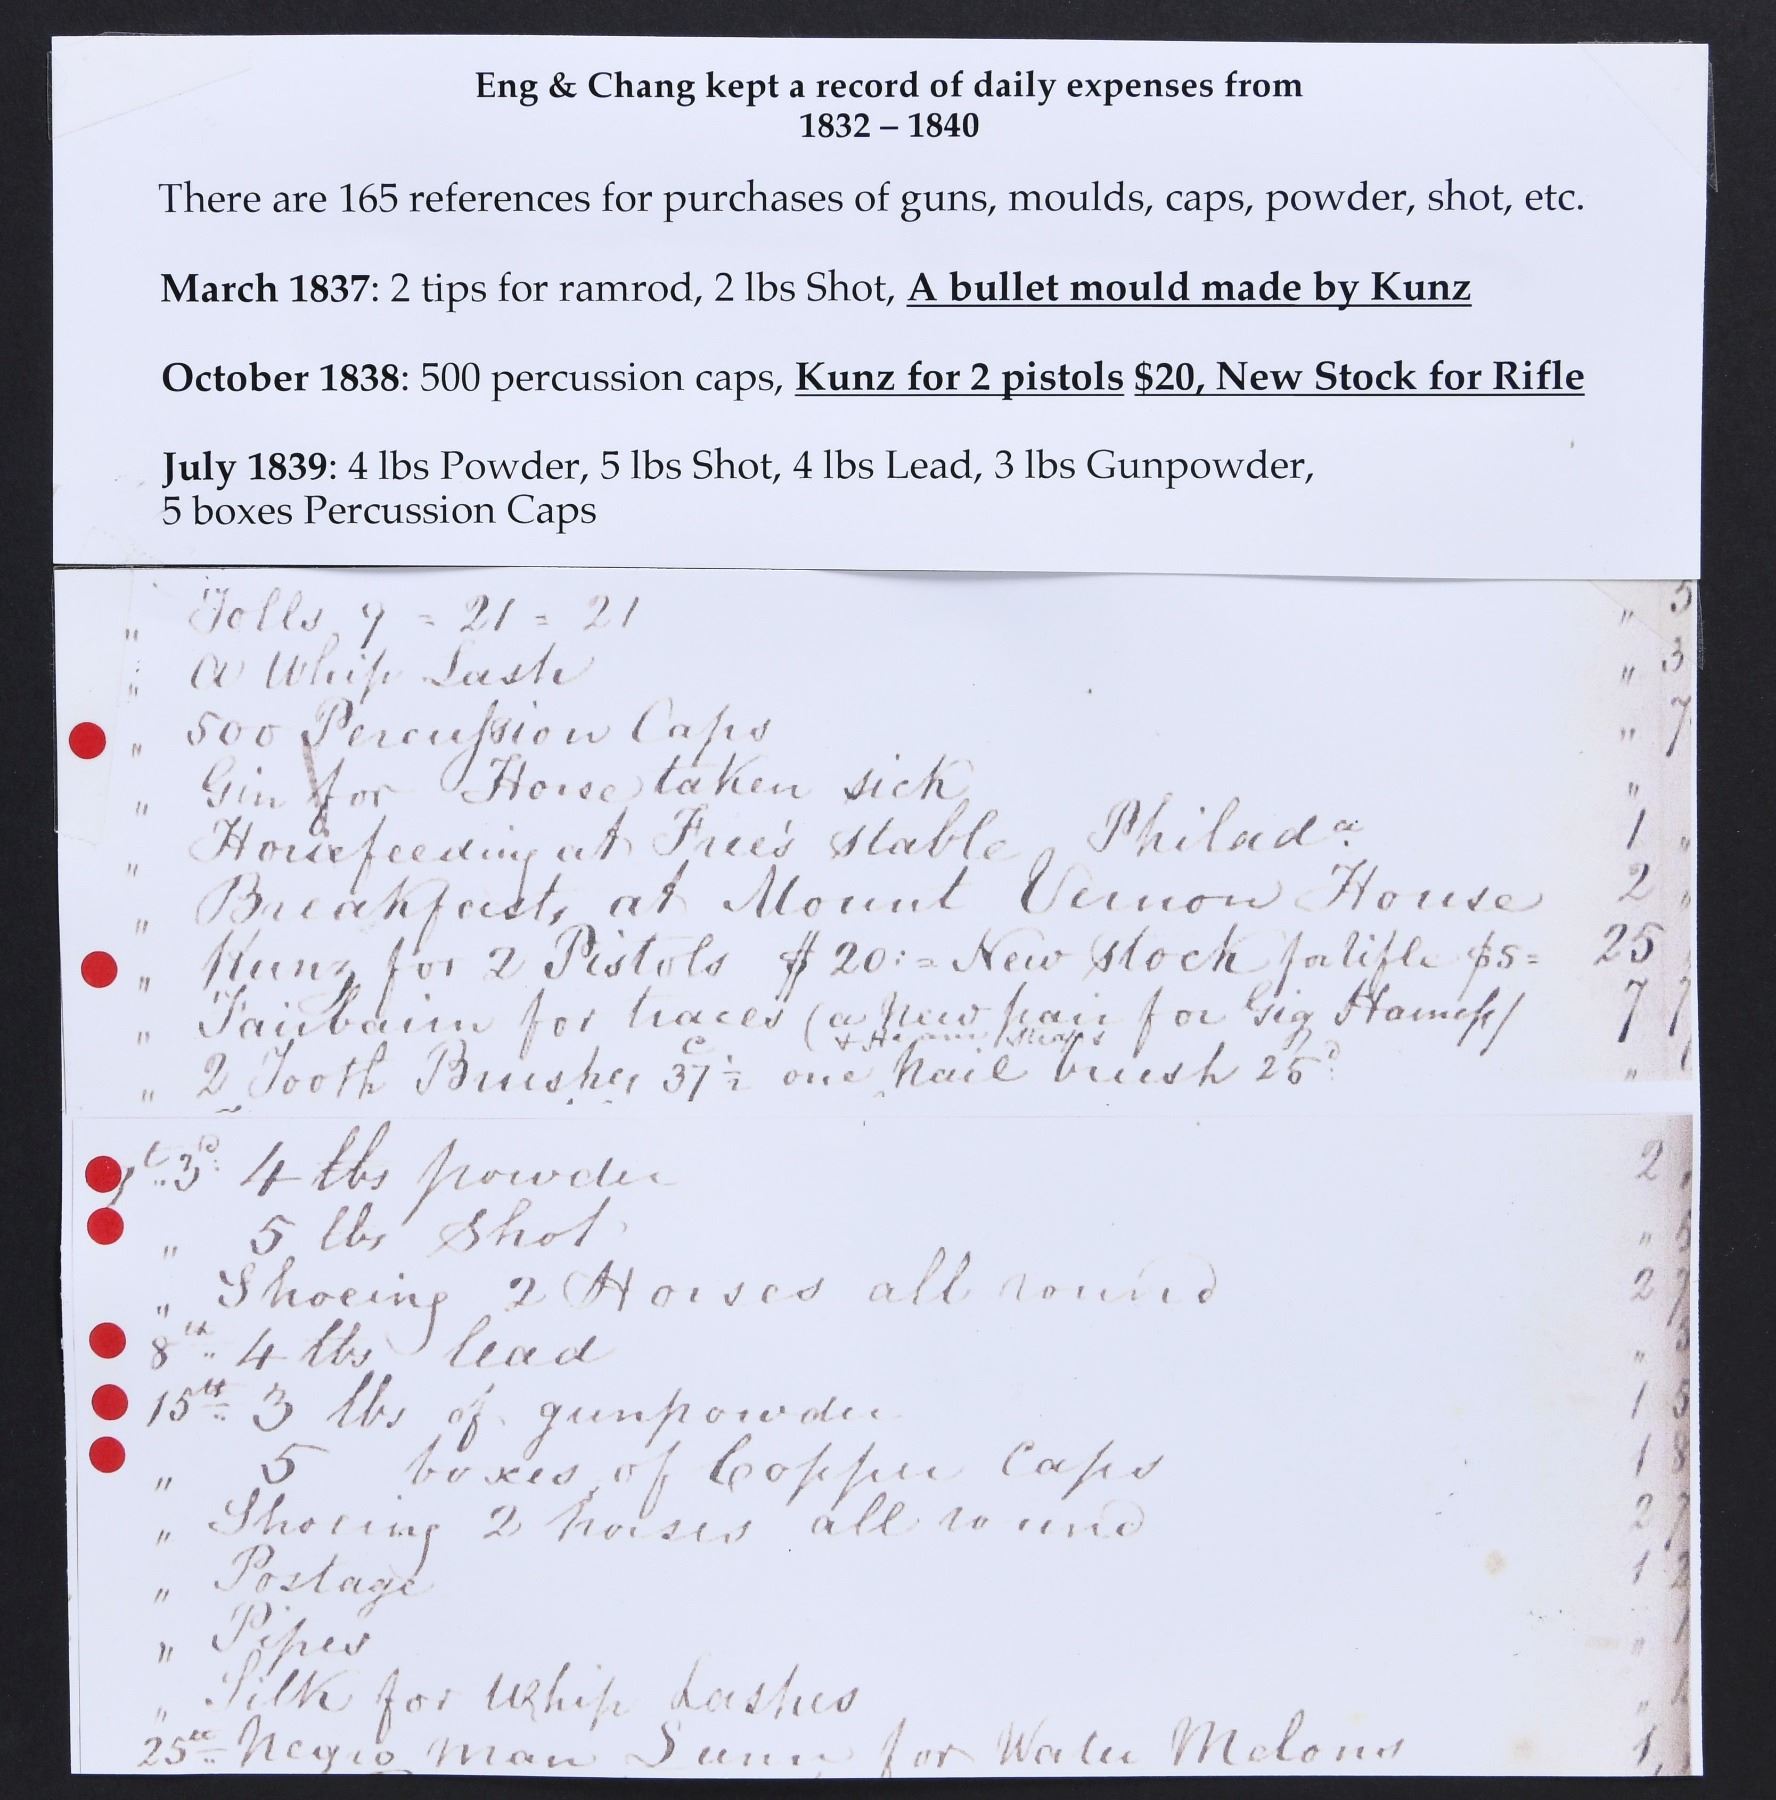 Eng & Chang kept a record of daily expenses from
1832 – 1840
There are 165 references for purchases of guns, moulds, caps, powder, shot, etc.
March 1837: 2 tips for ramrod, 2 lbs Shot, A bullet mould made by Kunz
October 1838: 500 percussion caps, Kunz for 2 pistols $20, New Stock for Rifle
July 1839: 4 lbs Powder, 5 lbs Shot, 4 lbs Lead, 3 lbs Gunpowder,
5 boxes Percussion Caps
" Tolls 9 = 21 = 21 " 5
" A Whip Lash " 3
" 500 Percussion Caps " 7
" Gin for Horse taken sick "
" Horsefeeding at Free's stable Philada. 1 "
" Breakfasts at Mount Vernon House 2 "
" Kunz for 2 Pistols $20:= New stock for rifle $5= 25
" Fairbairn for traces (a New pair for Gig Harness) 7 7
straps
" 2 Tooth Brushes 37½ one Nail brush 25 "
3d 4 lbs powder 2
" 5 lbs Shot " 5
" Shoeing 2 Horses all round 2 7
8th 4 lbs lead " 5
15th 3 lbs of gunpowder 1 5
" 5 boxes of Copper Caps 1 8
" Shoeing 2 horses all round 2 7
" Postage 1 2
" Pipes "
" Silk for Whip Lashes "
25th Negro man for Water Melons 1